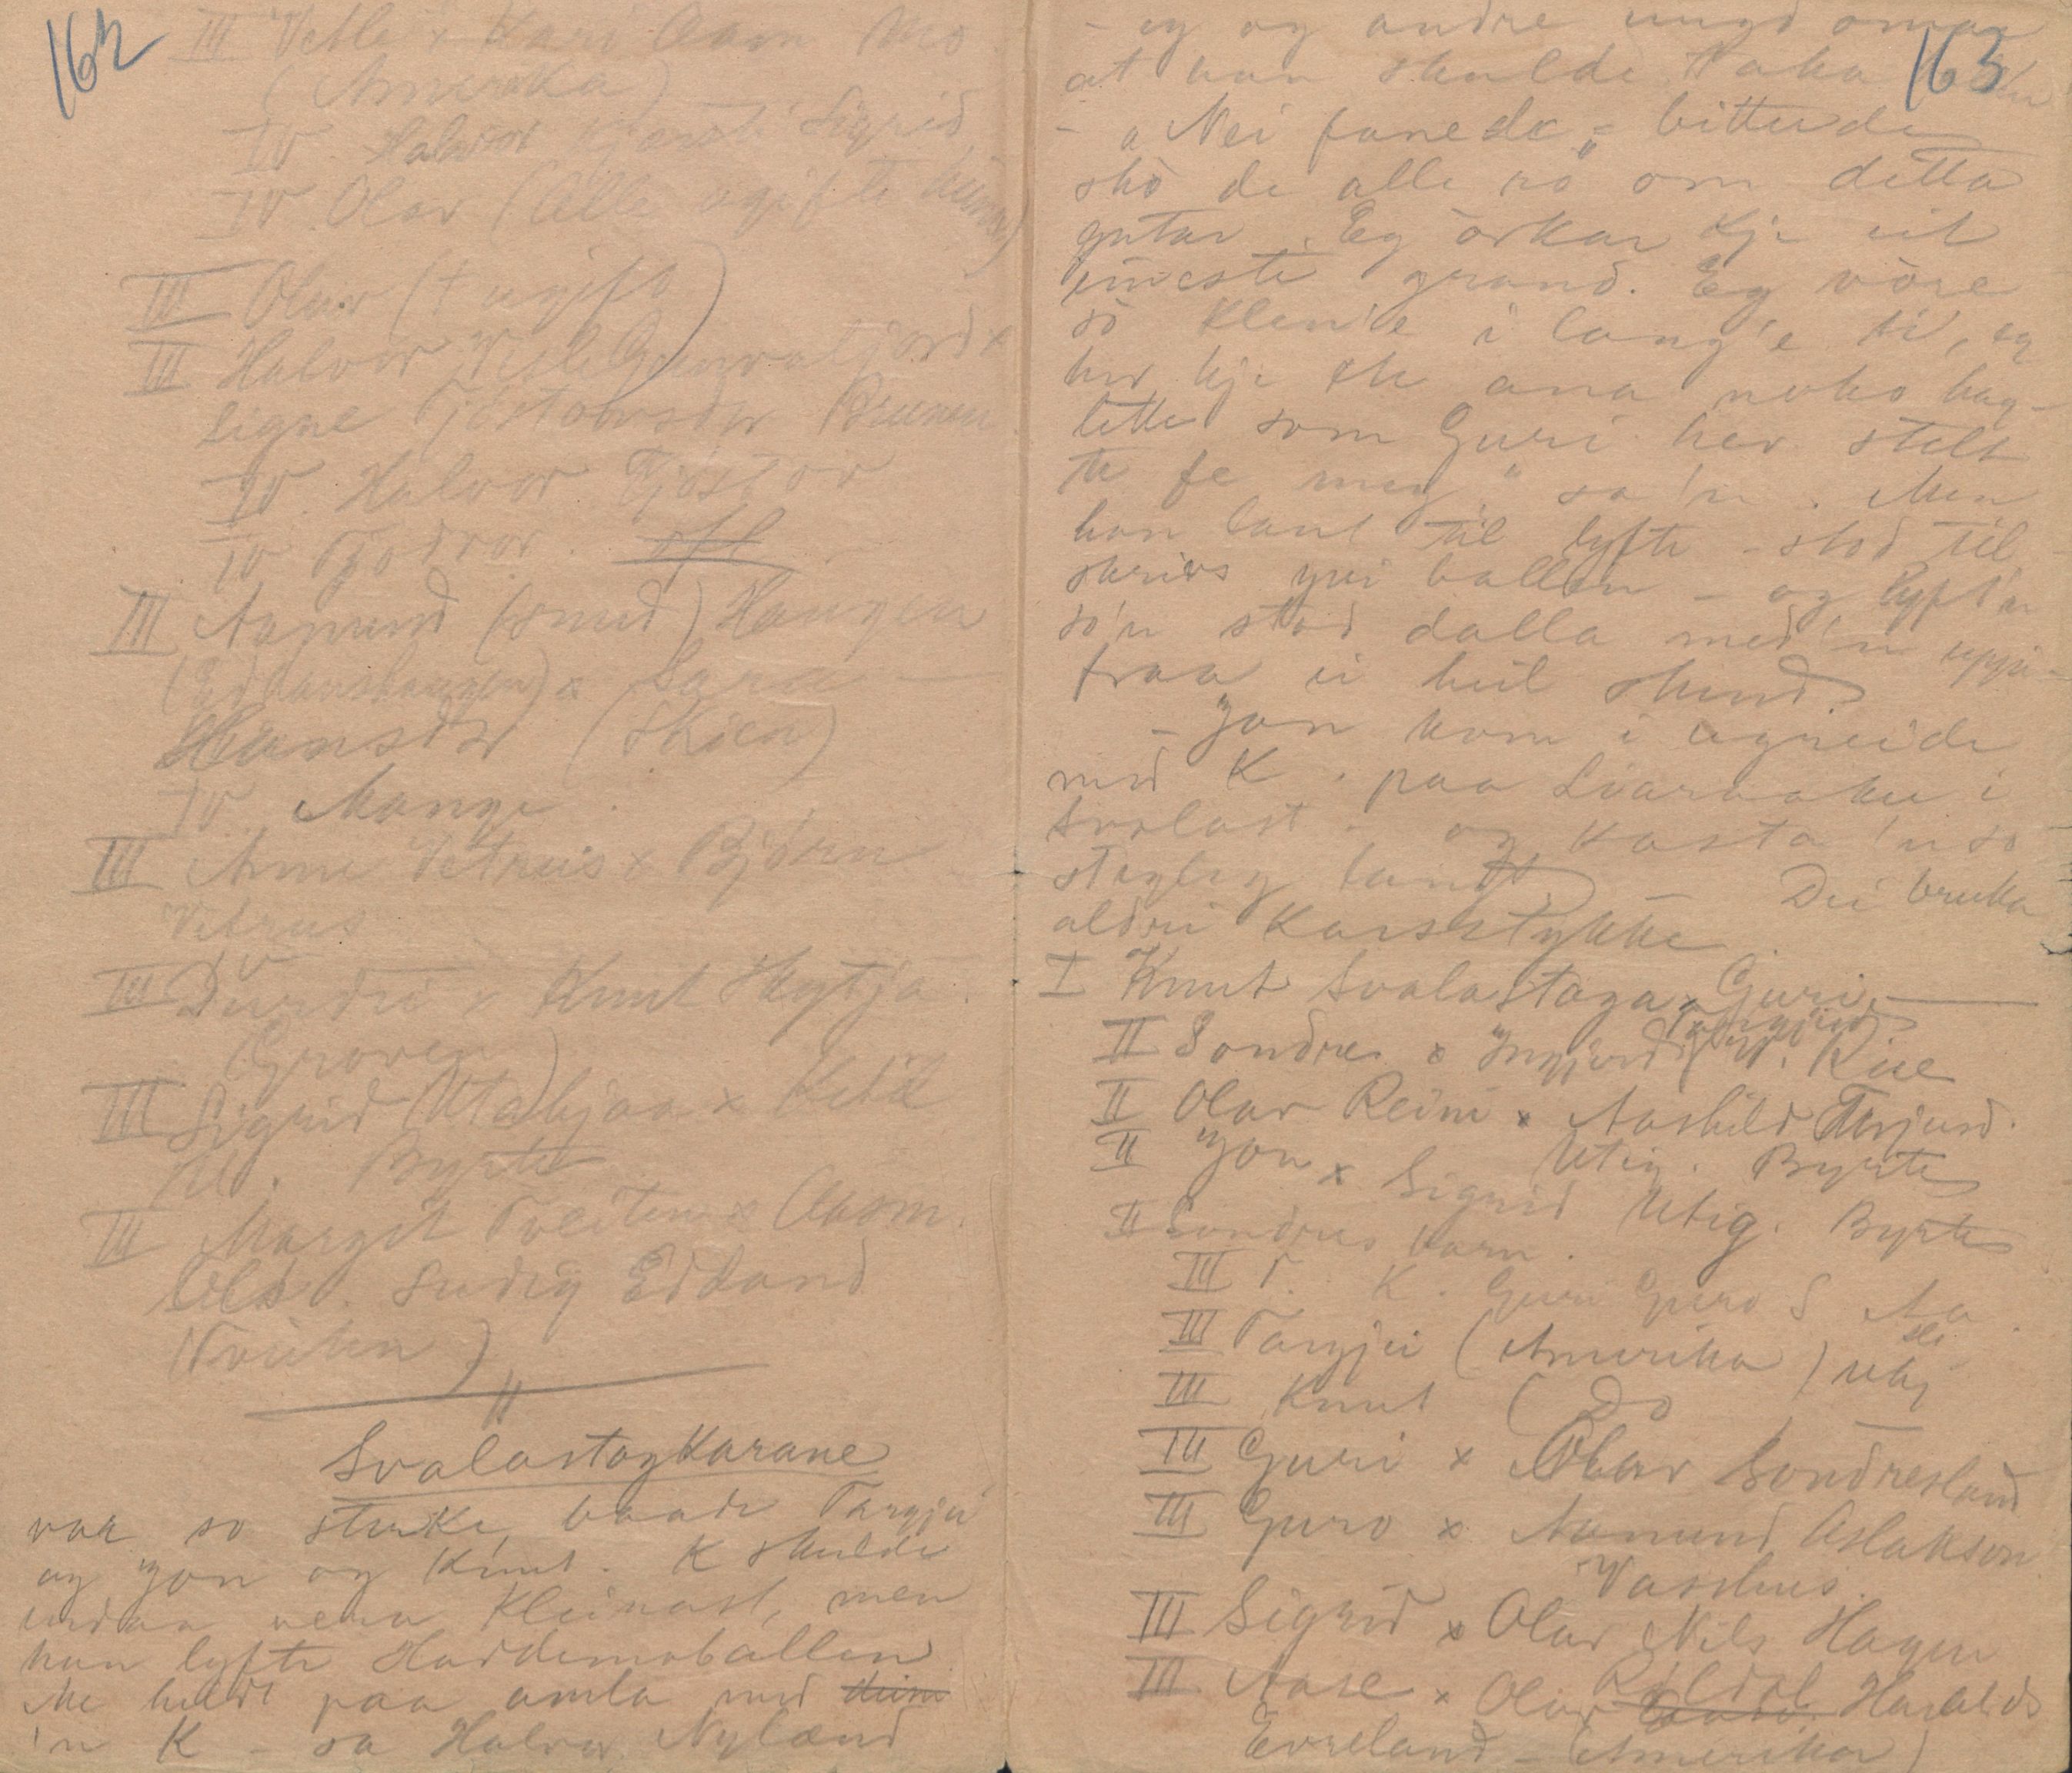 162
III Vetle x Kari Aasm Mo
(Amerika)
IV Halvor Kjersti Sigrid
IV Olav (Alle ugifte heime)
III Olav († ugift)
III Halvor Vesle Gunvaltjord x
Signe Tjöstovsdtr Brunen
IV Halvor Tjöstov
IV Tjodvor. ofl
III Aamund (smed) Haugen
(Edlandshaugen) x Sara —
Hansdtr (Skien)
IV Mange.
III Anne Vetrus x Björn
Vetrus
IV
III Durdei x Knut Skytja.
(Groven)
III Sigrid Utabjaa x Ketil
Byrte
III Margit Tveiten x Aasm.
Ols. Sudig Edland
(Tveiten)
Svalastogkarane
var so sterke, baade Targjei
og Jon og Knut. K skulde
endaa vera kleinast, men
han lyfte Haddemoballen
Me heldt paa amla med deim
'n K – sa Halvor Nyland
163
– eg og andre ungdomar
at han skulde taka
– "Nei fanede" – bitterde
skò de alle ro om detta
gutar. Eg örkar kje eit
eineste grand. Eg vöre
so klen'e i lang'e ti, eg
hev kje ete ana noko hag-
lette som Guri hev stelt
te fe meg" sa 'n. Men
han laut til lyfte – stod til
skrevs yvi ballen – og lyft'n
so'n stod dalla med 'n uppi
fraa ei heil stund.
– Jon kom i ugreide
med K. paa Liaraaken i
Svalast – og kasta 'n so
stygleg langt – Dei bruka
aldri karsstykke.
I Knut Svalastoga x Guri —
II Sondre x Ingjerd Targjeisd. Kije
II Olav Reini x Aashild Terjusd.
Utig. Byrte
II Jon x Sigrid Utig. Byrte
II Sondres born.
III T. K. Guri Guro S Aa.
III Targjei (Amerika) ukj
III Knut (Do
III Guri x Olav Sondresland
III Guro x Aamund Aslakson
Vashus.
III Sigrid x Olav Nils Hagen
Röldal
III Aase x Olav Haralds
Evreland – (Amerika)